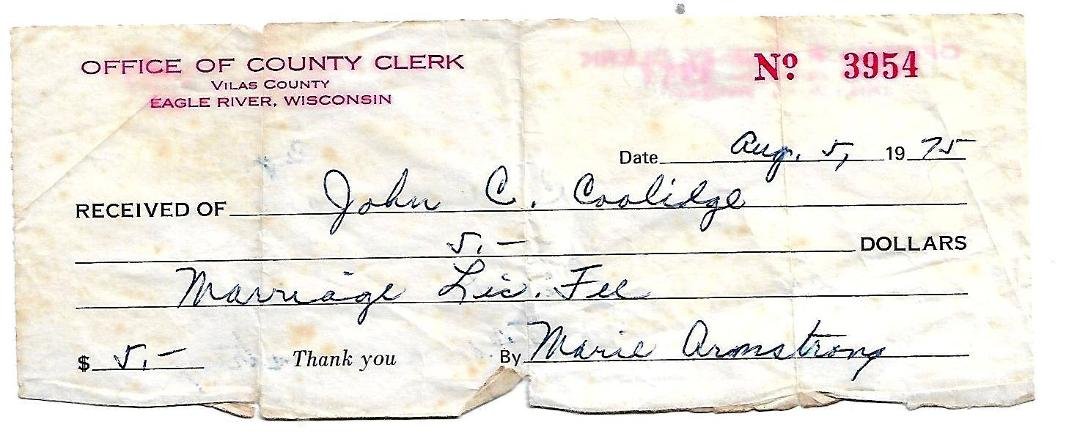 OFFICE OF COUNTY CLERK
VILAS COUNTY
EAGLE RIVER, WISCONSIN
Nº 3954
Date Aug. 5, 1975
RECEIVED OF John C. Coolidge
5.— DOLLARS
Marriage Lic. Fee
$ 5.— Thank you By Marie Armstrong